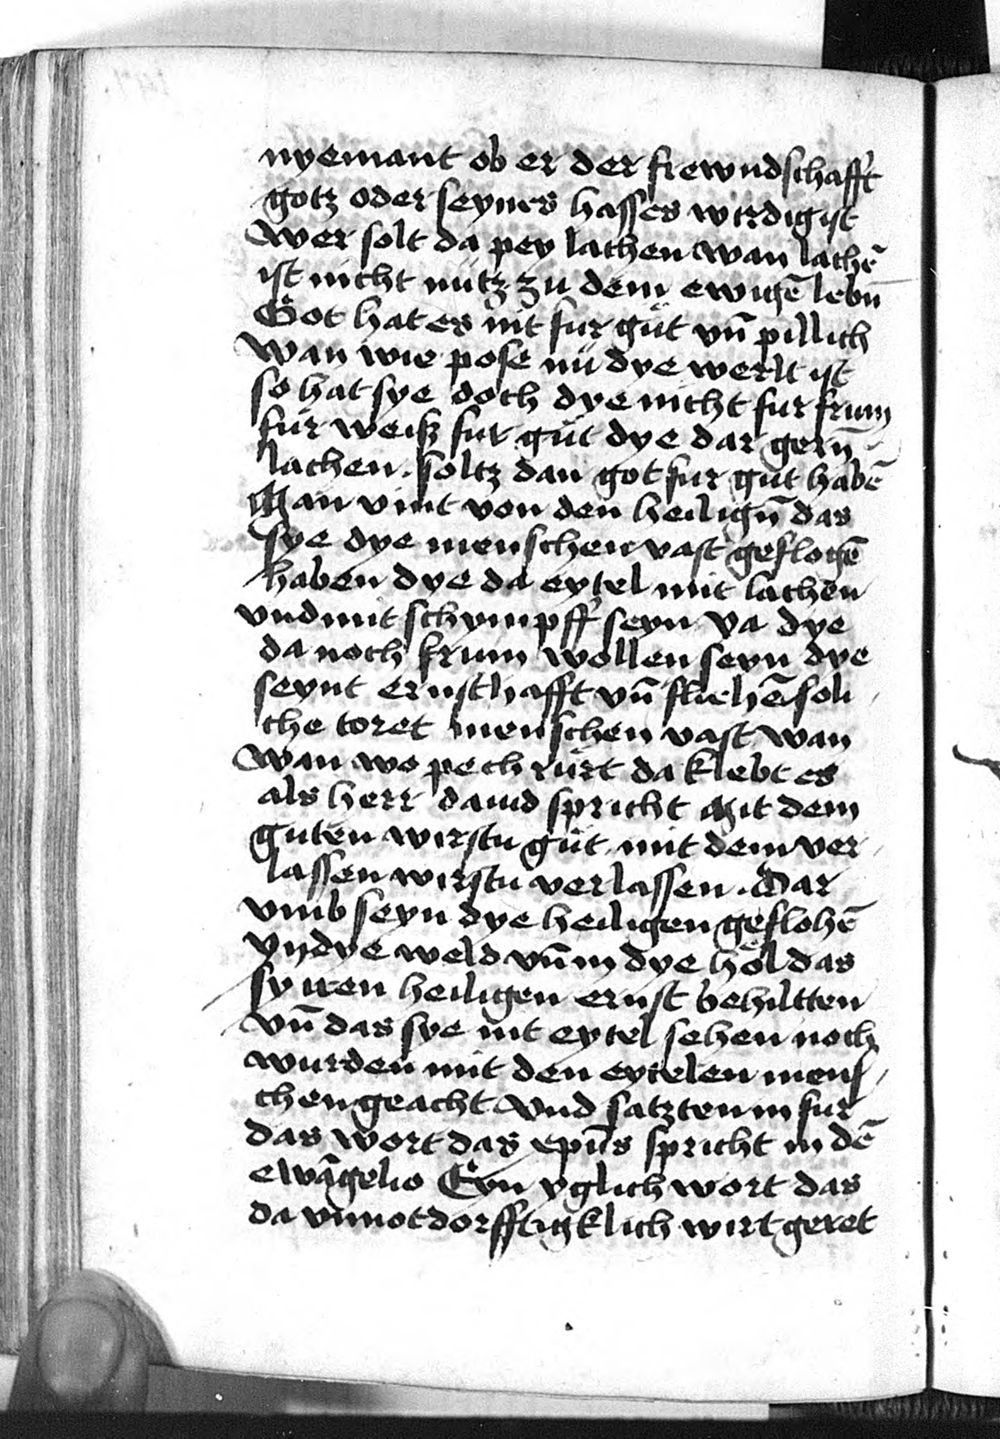 nyemant ob er der frewndschafft
gotz oder seynes hasses wirdig ist
Wer solt da pey lachen wan lachē
ist nicht nütz zu dem ewigē lebn̄
Got hat es nit fur gůt vn̄ pillich
Wan wie pose nů dye werlt ist
so hat sye doch dye nicht fur frum
fur weiß fur gůt dye dar gern̄
lachen. soltz dan got fur gut habē
Man vint von den heilign̄ das
sye dye menschen vast geflogē
haben dye da eytel mit lachen
vnd mit schympff seyn va dye
da noch frum wollen seyn dye
seynt ernsthafft vn̄ fliehē soli
che toret menschen vast wan
Wan wo pech rürt da klebt es
als herr dauid spricht Mit dem
guten wirstu gůt mit dem ver
lassen wirstu verlassen. Dar
vmb seyn dye heiligen geflohē
yn dye weld vn̄ in dye höl das
sy iren heiligen ernst behiltten
vn̄ das sye nit eytel sehen noch
wurden mit den eytelen mens
chen geacht Vnd satzten in fur
das wort das xp̄us spricht in dē
ewāgelio Eyn yglich wort das
da vnnotdorfftigklich wirt geret